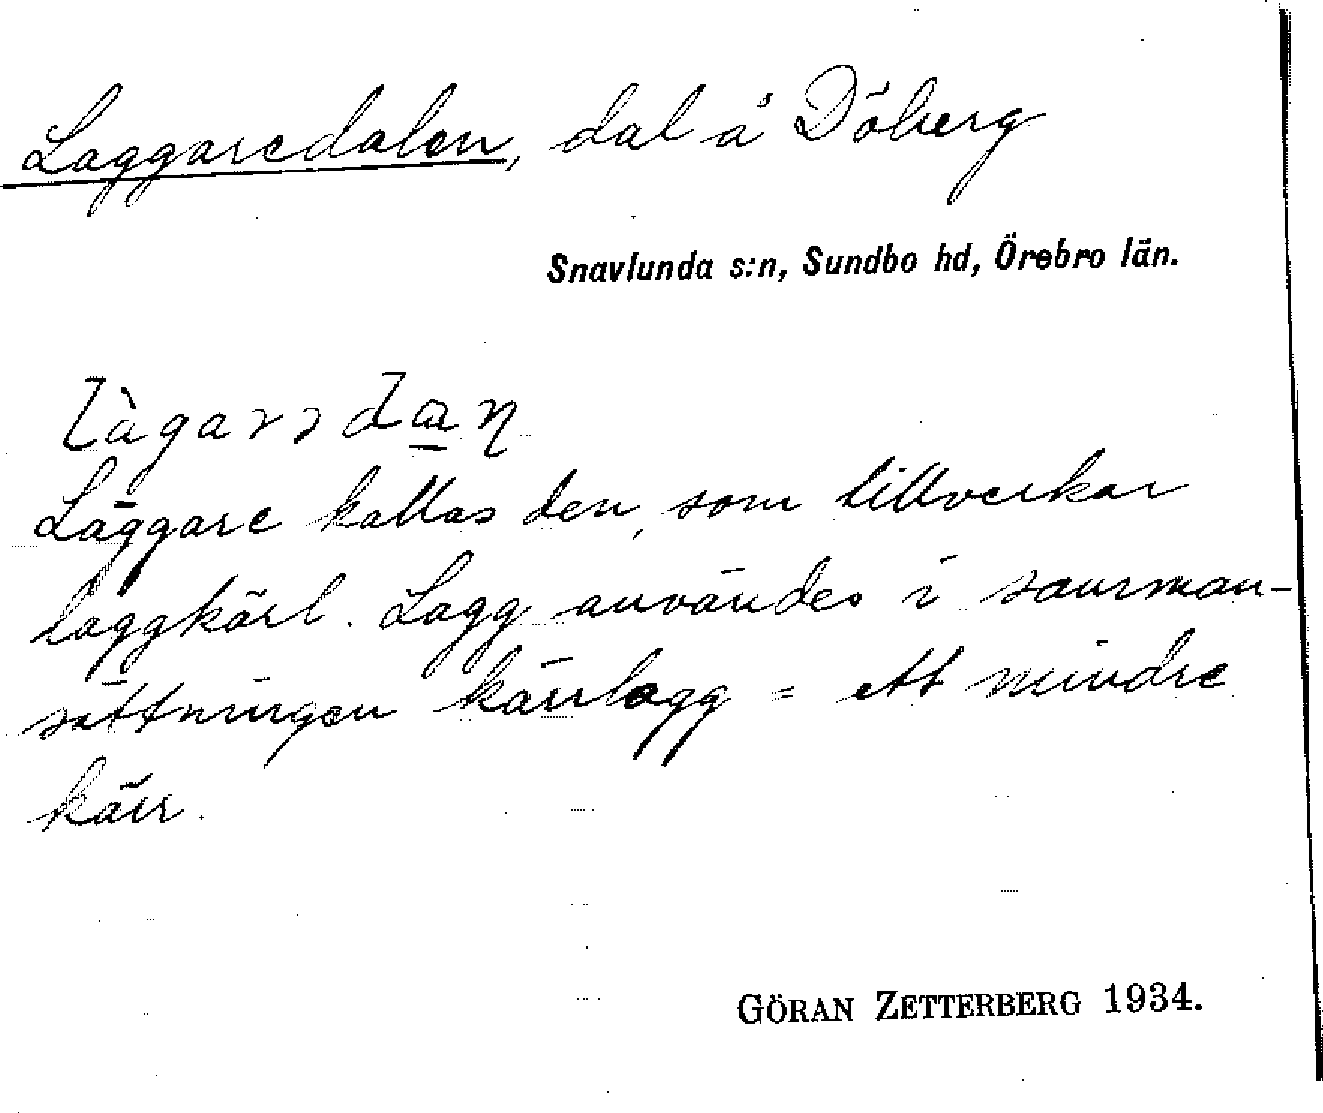 Laggaredalen, dal å Döberg
Snavlunda s:n, Sundbo hd, Örebro län.
Laggare kallas den, som tillverkar
laggkärl. Lagg användes i samman-
sättningen kärrlagg = ett mindre
kärr.
GÖRAN ZETTERBERG 1934.